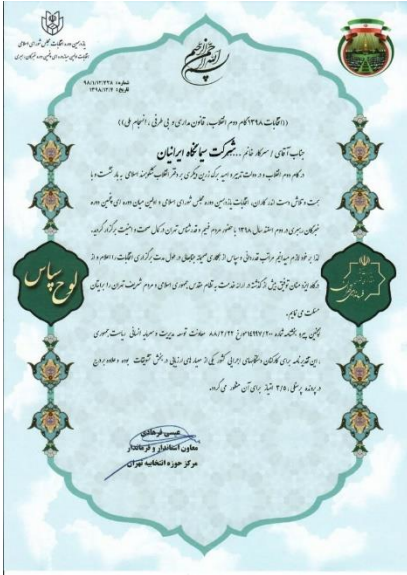 یازدهمین دوره انتخابات مجلس شورای اسلامی
بسم الله الرحمن الرحیم
شماره: ۹۸/۱/۱۲/۲۳۵
تاریخ: ۱۳۹۸/۱۲/۲
((انتخابات ۱۳۹۸ گام دوم انقلاب، قانون مداری و بی طرفی، انسجام ملی))
جناب آقای / سرکار خانم ... شرکت سیمانخواه ایرانیان
در گام دوم انقلاب و در دولت تدبیر و امید برگ زرین دیگری بر دفتر انقلاب شکوهمند اسلامی به بار نشست و با
همت و تلاش دست اندر کاران، انتخابات یازدهمین دوره مجلس شورای اسلامی و اولین میان دوره ای پنجمین دوره
خبرگان رهبری در دوم اسفند سال ۱۳۹۸ با حضور مردم فهیم و قدرشناس تهران در کمال صحت و امنیت برگزار گردید.
لذا بر خود لازم میدانم مراتب قدردانی و سپاس از همکاری صمیمانه جنابعالی در طول مدت برگزاری انتخابات را اعلام و از
درگاه ایزد منان توفیق بیش از گذشته در راه خدمت به نظام مقدس جمهوری اسلامی و مردم شریف تهران را برایتان
مسئلت می نمایم.
همچنین پیرو بخشنامه شماره ۱۴۹۹۷/۲۰۰ مورخ ۸۸/۲/۲۲ معاونت توسعه مدیریت و سرمایه انسانی ریاست جمهوری
، این تقدیرنامه برای کارکنان دستگاههای اجرایی کشور یکی از معیارهای ارزیابی در بخش تشویقات بوده و علاوه بر درج
در پرونده پرسنلی، ۳/۵ امتیاز برای آن منظور می گردد.
لوح سپاس
عیسی فرهادی
معاون استاندار و فرماندار
مرکز حوزه انتخابیه تهران